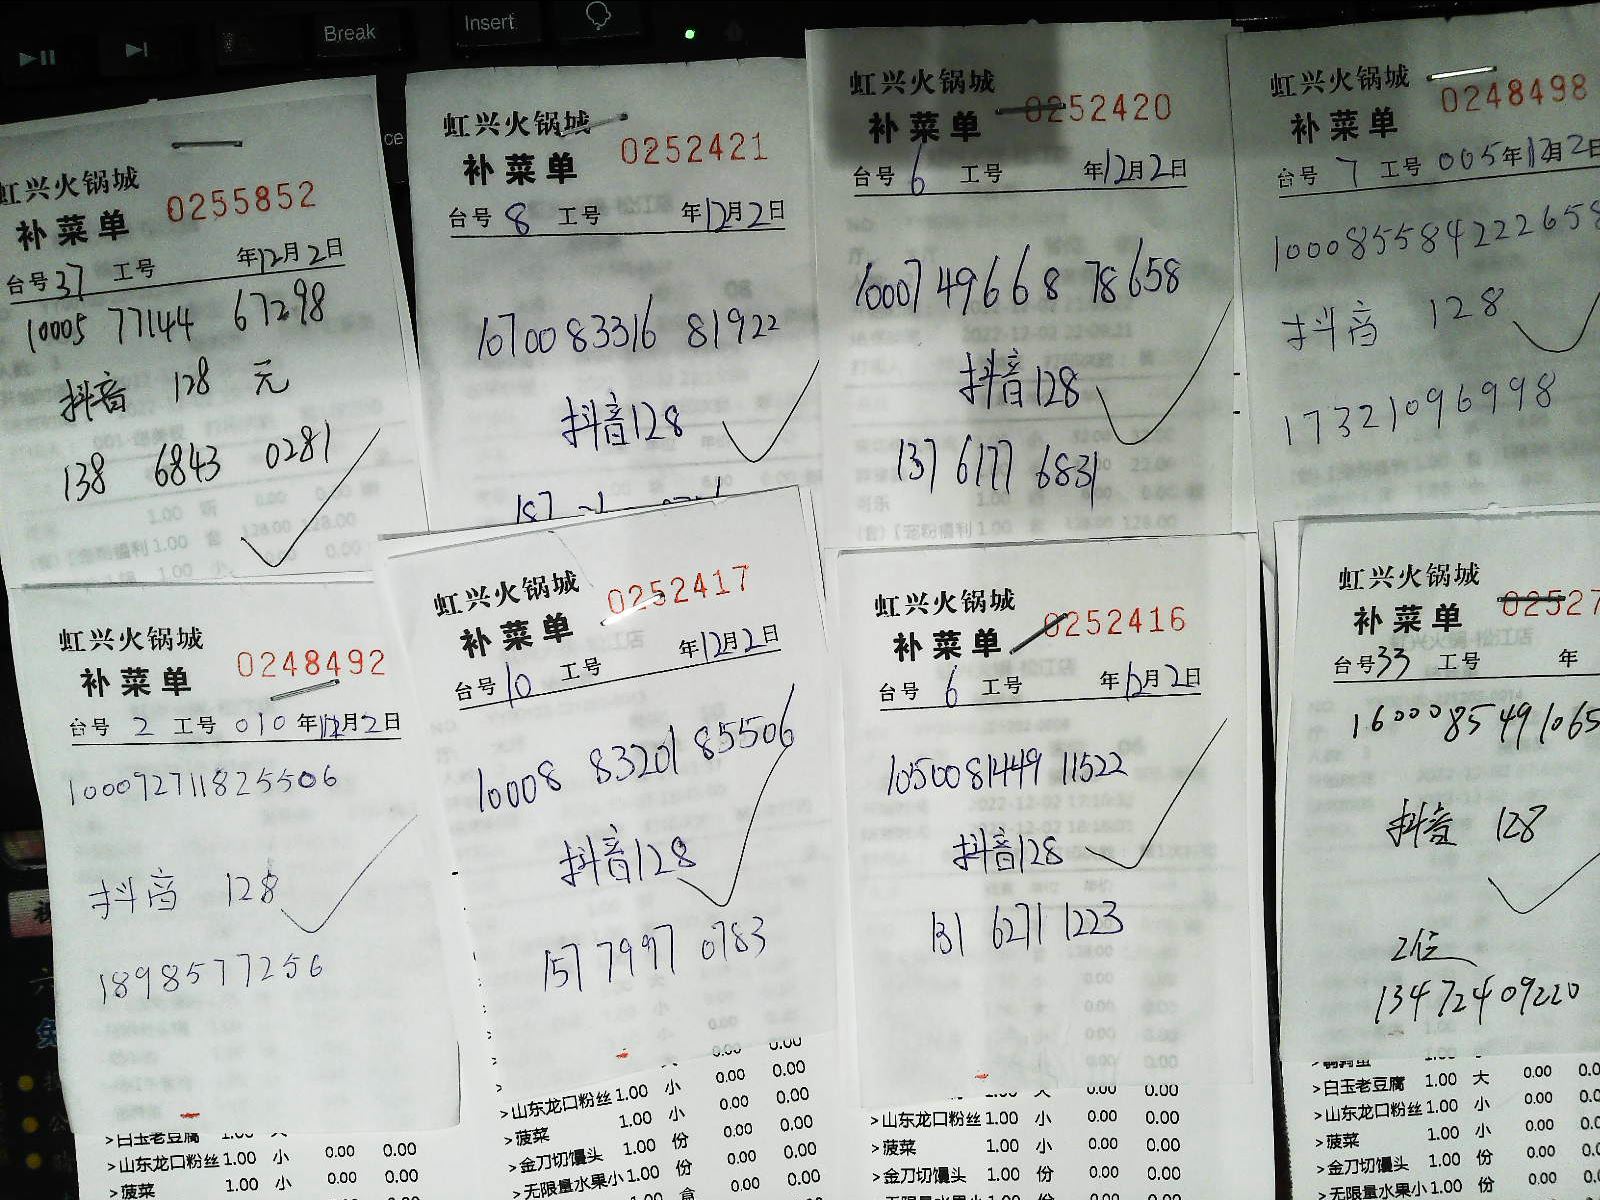 Break
Insert
虹兴火锅城
补菜单 0255852
台号 37 工号 年12月2日
10005 77144 67298
抖音 128 元
138 6843 0281
虹兴火锅城
补菜单 0252421
台号 8 工号 年12月2日
1070083316 81922
抖音128
187
虹兴火锅城
补菜单 0252420
台号 6 工号 年12月2日
10007 49668 78658
抖音128
137 6177 6831
虹兴火锅城
补菜单 0248498
台号 7 工号 005年12月2日
100085584222658
抖音 128
17321096998
虹兴火锅城
补菜单 0248492
台号 2 工号 010年12月2日
100092711825506
抖音 128
1898577256
>白玉老豆腐 1.00 大
>山东龙口粉丝1.00 小 0.00 0.00
>菠菜 1.00 小 0.00 0.00
虹兴火锅城
补菜单 0252417
台号 10 工号 年12月2日
10008 83201 85506
抖音128
157 7997 0783
>山东龙口粉丝1.00 小 0.00 0.00
>菠菜 1.00 小 0.00 0.00
>金刀切馒头 1.00 份 0.00 0.00
>无限量水果小1.00 份 0.00 0.00
虹兴火锅城
补菜单 0252416
台号 6 工号 年12月2日
1050081449 11522
抖音128
131 6271 1223
>山东龙口粉丝1.00 小 0.00 0.00
>菠菜 1.00 小 0.00 0.00
>金刀切馒头 1.00 份 0.00 0.00
虹兴火锅城
补菜单 02527
台号33 工号 年
1600085491065
抖音 128
2位
13472409220
>白玉老豆腐 1.00 大 0.00
>山东龙口粉丝1.00 小 0.00
>菠菜 1.00 小 0.00
>金刀切馒头 1.00 份 0.00
>无限量水果小1.00 份 0.00